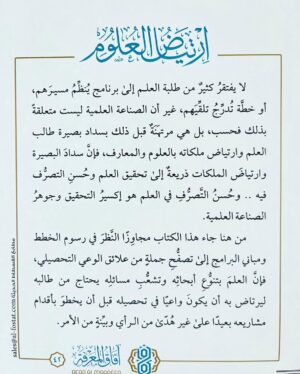 ارتياض العلوم
لا يفتقرُ كثيرٌ من طلبة العلم إلىٰ برنامج يُنَظِّمُ مسيرَهم،
أو خطَّة تُدرِّجُ تلقِّيَهم، غير أن الصناعة العلمية ليست متعلقةً
بذلك فحسب، بل هي مرتهَنَةٌ قبل ذلك بسداد بصيرة طالب
العلم وارتياض ملكاته بالعلوم والمعارف، فإنَّ سدادَ البصيرة
وارتياضَ الملكات ذريعةٌ إلىٰ تحقيق العلم وحُسنِ التصرُّف
فيه .. وحُسنُ التَّصرُّفِ في العلم هو إكسيرُ التحقيق وجوهرُ
الصناعة العلمية.
من هنا جاء هذا الكتاب مجاوِزًا النَّظرَ في رسوم الخطط
ومباني البرامج إلىٰ تصفُّحِ جملةٍ من علائق الوعي التحصيلي،
فإنَّ العلمَ بتنوُّعِ أبحاثِه وتشعُّبِ مسائلِه يحتاج من طالبه
ليرتاض به أن يكونَ واعيًا في تحصيله قبل أن يخطوَ بأقدام
مشاريعه بعيدًا علىٰ غير هُدًىٰ من الرأي وبيِّنةٍ من الأمر.
sales@al-fostat.com
آفاق المعرفة
٤٢